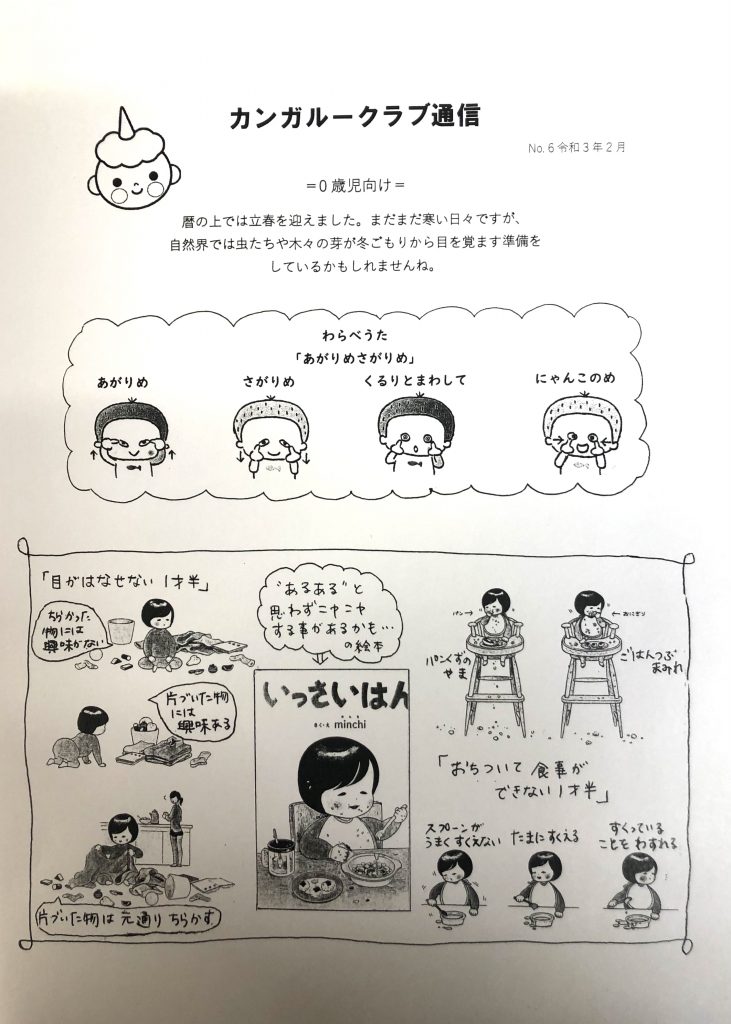 カンガルークラブ通信
No.6令和3年2月
=0歳児向け=
暦の上では立春を迎えました。まだまだ寒い日々ですが、
自然界では虫たちや木々の芽が冬ごもりから目を覚ます準備を
しているかもしれませんね。
わらべうた
「あがりめさがりめ」
あがりめ
さがりめ
くるりとまわして
にゃんこのめ
「目がはなせない1才半」
ちらかった
物には
興味がない
片づいた物
には
興味ある
片づいた物は元通りちらかす
"あるある"と
思わずニヤニヤ
する事があるかも…
の絵本
いっさいはん
さく・え minchi
パン→
パンくずの
やま
←おにぎり
ごはんつぶ
まみれ
「おちついて食事が
できない1才半」
スプーンが
うまくすくえない
たまにすくえる
すくっている
ことをわすれる